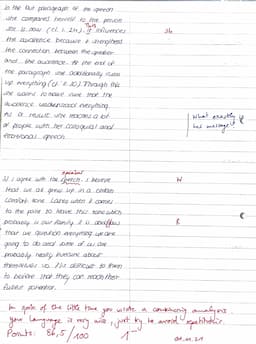 In the last paragraph of the speech
she compares herself to the person
she is now (cf. l. 24). This influences
the audience because it strengthens
the connection between the speaker
and the audience. At the end of
the paragraph she additionally sums
up everything (cf. l. 30). Through this
she wants to make sure that the
audience understood everything.
As a result she reaches a lot
of people with her colloquial and
emotional speech.
Sb
What exactly is
her message?
3) I agree with the speech. I believe
speaker
that we all grew up in a certain
comfort zone. Later when it comes
to the point to leave this zone which
probably is our family it is
that we question everything we are
going to do and some of us are
probably really insecure about
themselves so it is difficult to them
to believe that they can reach their
fullest potential.
W
R
In spite of the little time you wrote a convincing analysis
your language is very nice, just try to avoid repetitions.
Points: 86,5 / 100
1-